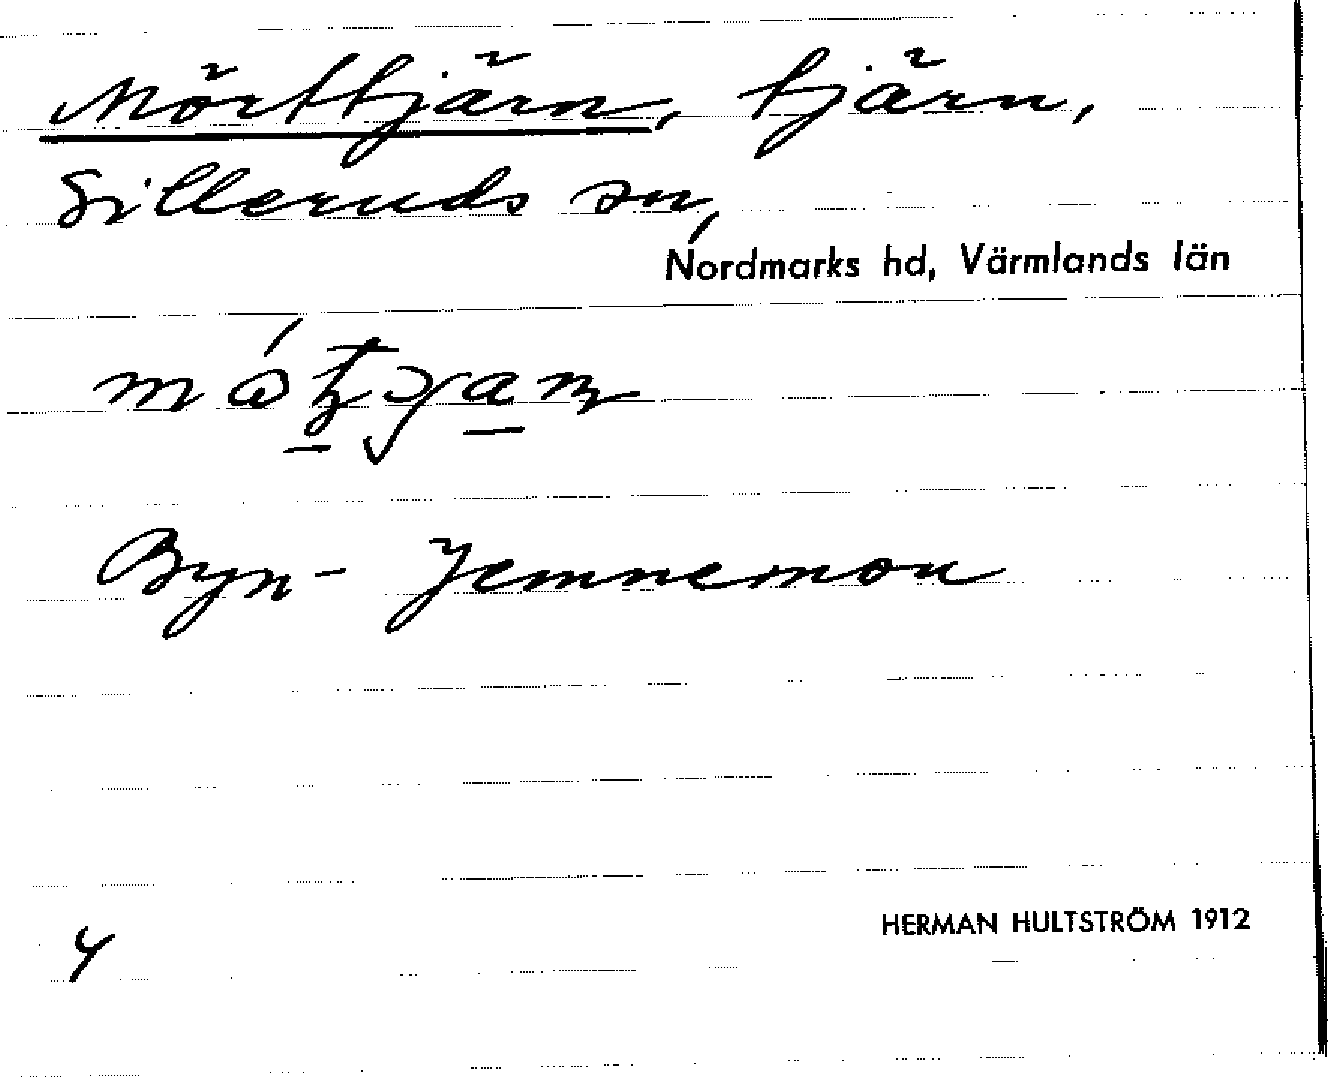 Mörttjärn, tjärn,
Silleruds sn,
Nordmarks hd, Värmlands län
Byn- Jemnemon
HERMAN HULTSTRÖM 1912
4